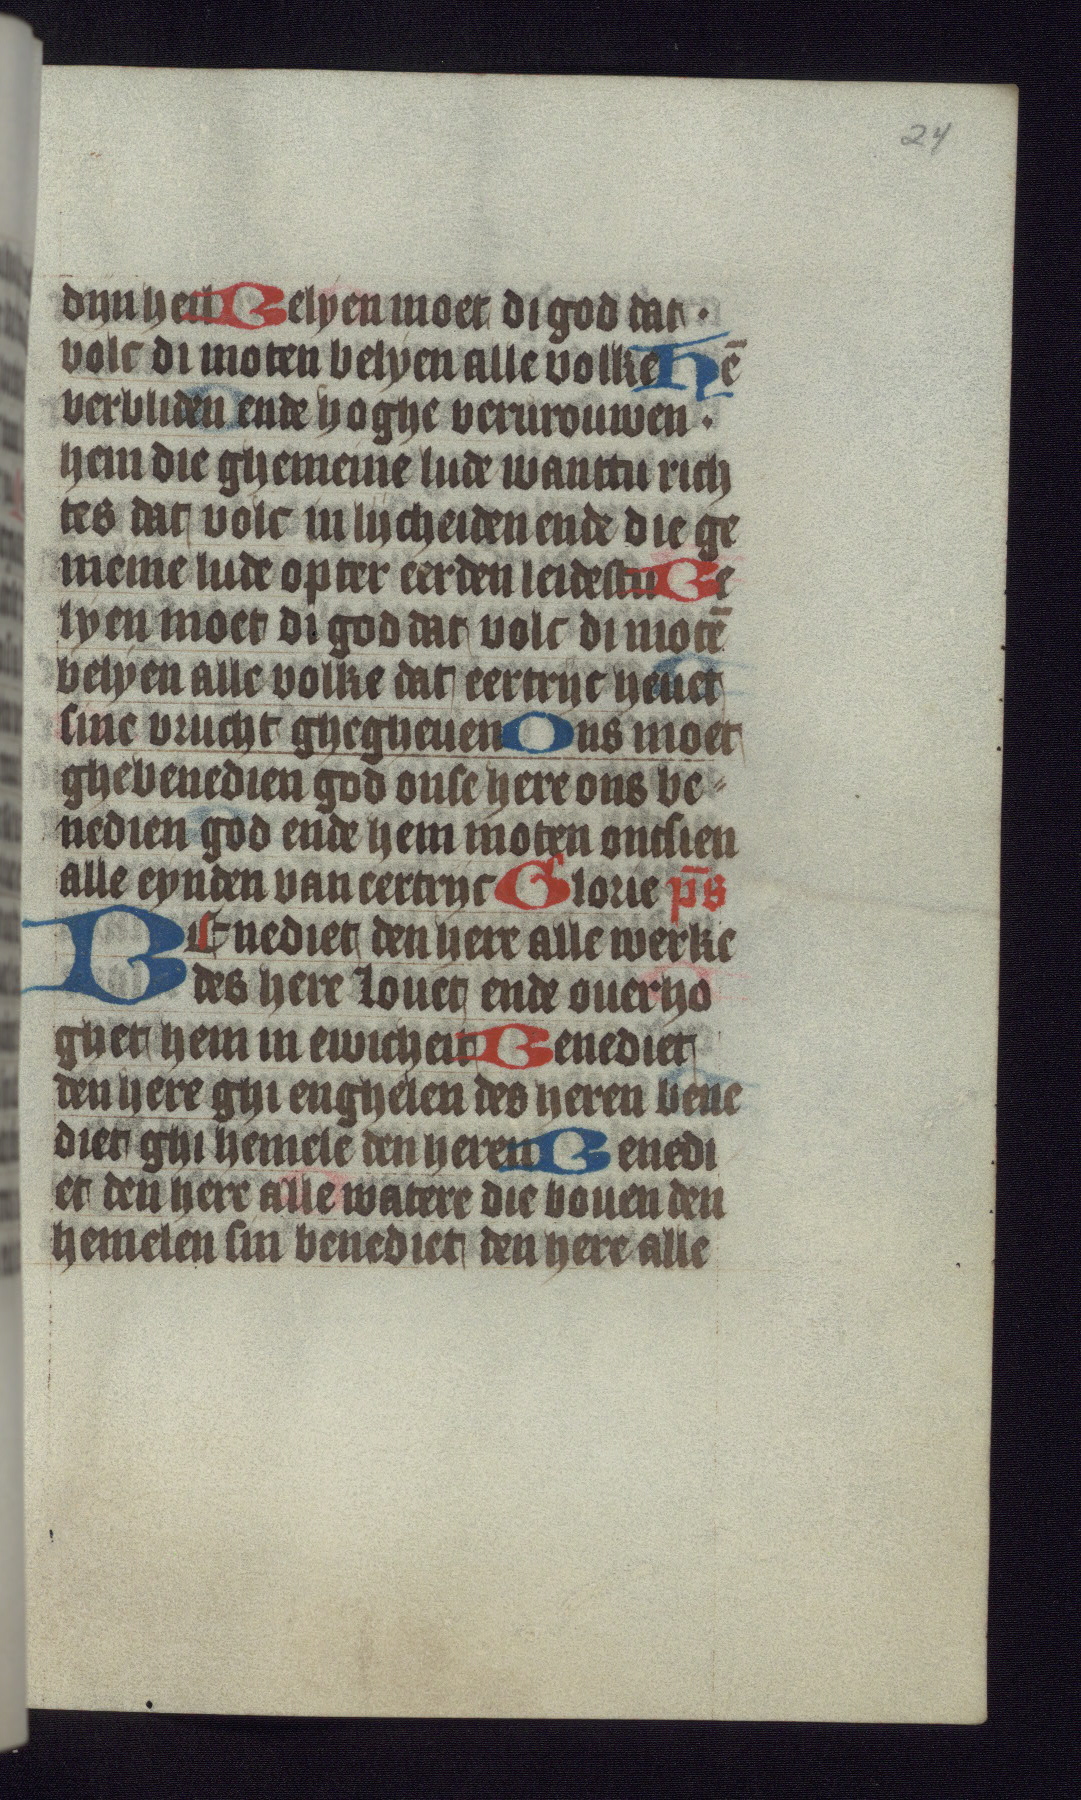 24
dijn heil Belyen moet di god dat ·
volc di moten belyen alle volke Hē
verbliden ende hoghe vervrouwen ·
hem die ghemeine lude wanttu rich
tes dat volc in lijcheiden ende die ge
meine lude opter eerden leidestu Be
lyen moet di god dat volc di motē
belyen alle volke dat eertrijc hevet
sine vrucht ghegheuen Ons moet
ghebenedien god onse here ons be-
nedien god ende hem moten ontsien
alle eynden van eertrijc Glorie p̄s
BEnediet den here alle werke
des here Louet ende ouerho
ghet hem in ewicheit Benediet
den here ghi enghelen des heren bene
diet ghi hemele den heren Benedi
et den here alle watere die bouen den
hemelen sin benediet den here alle